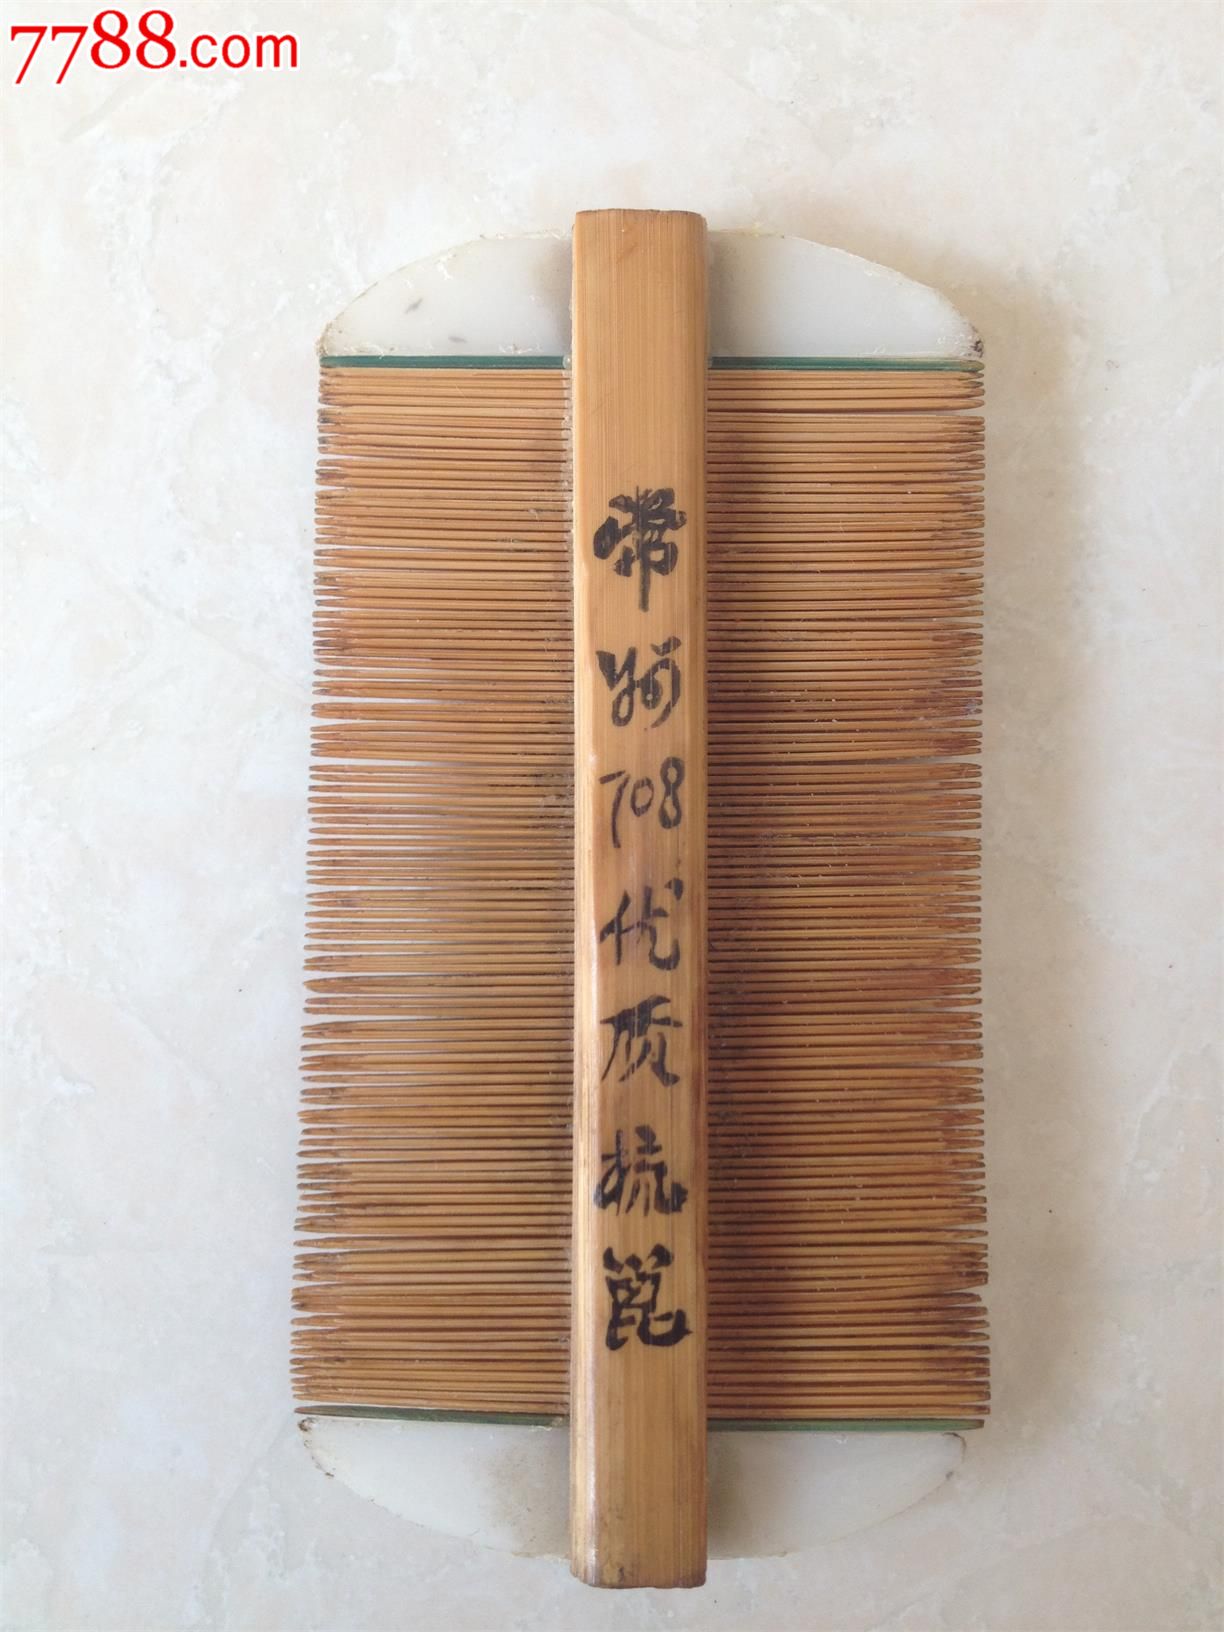 7788.com
常 708优质梳篦